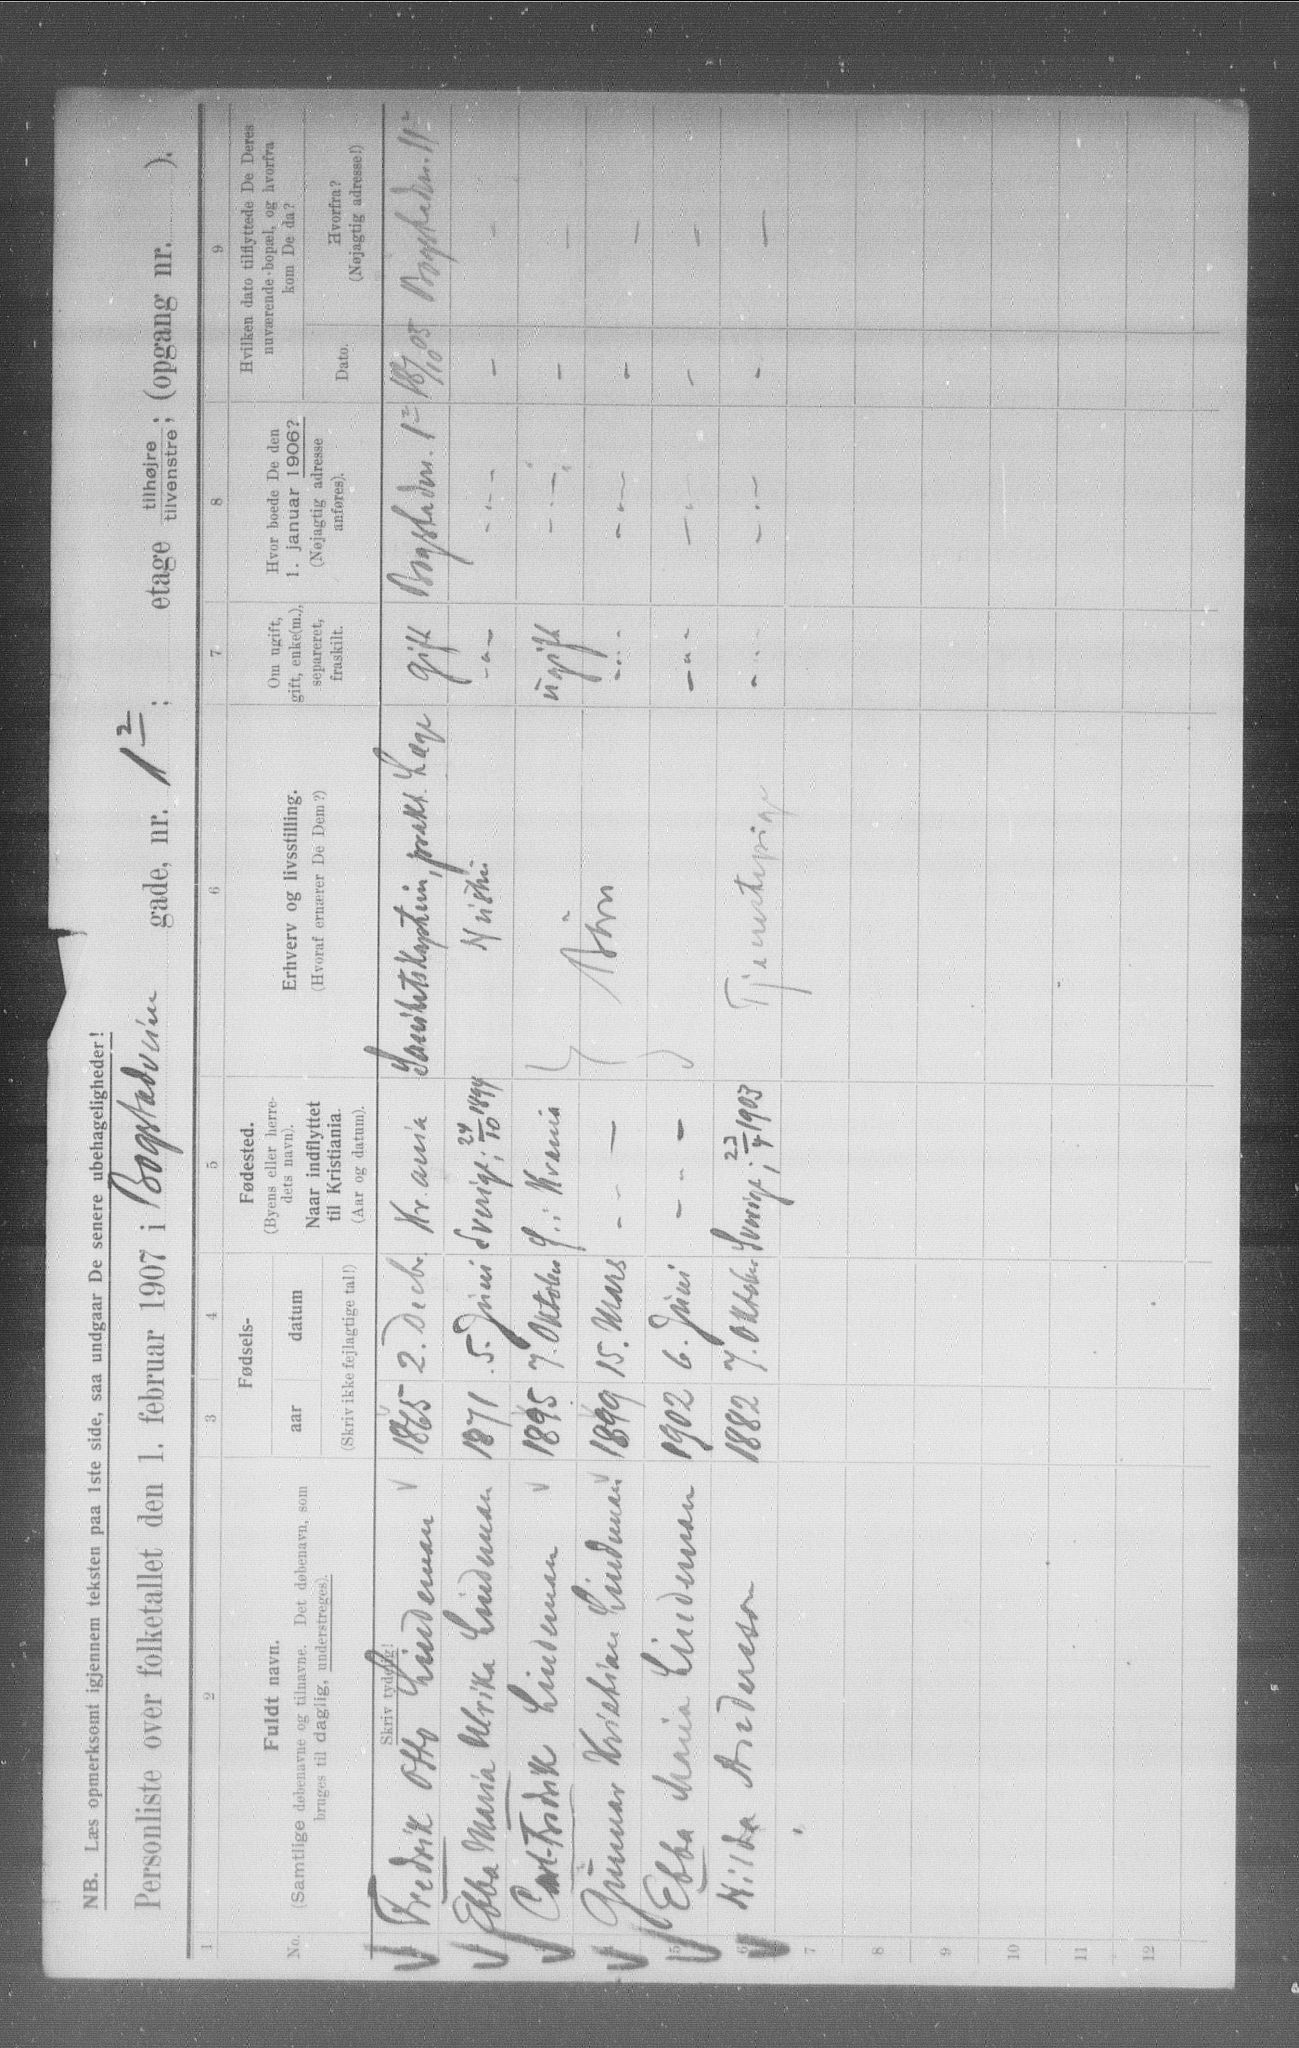 NB. Læs opmerksomt igjennem teksten paa 1ste side, saa undgaar De senere ubehageligheder!
Personliste over folketallet den 1. februar 1907 i Bogstadveien gade, nr. 1²; etage tilhøjre tilvenstre; (opgang nr. ).
1 2 3 4 5 6 7 8 9
No.
Fuldt navn.
(Samtlige døbenavne og tilnavne. Det døbenavn, som
bruges til daglig, understreges).
Skriv tydelig!
Fødsels-
aar datum
(Skriv ikke fejlagtige tal!)
Fødested.
(Byens eller herre-
dets navn).
Naar indflyttet
til Kristiania.
(Aar og datum).
Erhverv og livsstilling.
(Hvoraf ernærer De Dem?)
Om ugift,
gift, enke(m.),
separeret,
fraskilt.
Hvor boede De den
1. januar 1906?
(Nøjagtig adresse
anføres).
Hvilken dato tilflyttede De Deres
nuværende bopæl, og hvorfra
kom De da?
Dato.
Hvorfra?
(Nøjagtig adresse!)
Fredrik Otto Lindeman 1865 2. Decbr. Kr.ania Sanitetskaptein, prakt. Læge gift Bogstadvn. 1² 18/10 05 Bogstadvn. 11²
Ebba Maria Ulrika Lindeman 1871 5. Juni Sverige; 24/10 1894 Hustru - - - - - - - -
Carl-Fredrik Lindeman 1895 7. Oktober Krania ugift - - - - -
Gunnar Kristian Lindeman 1899 15. Mars - - - Børn - - - - - - - -
5 Ebba Maria Lindeman 1902 6. Juni - - - - - - - - - -
6 Hilda Andersson 1882 7. Oktober Sverige; 23/4 1903 Tjenestepige - - - - - - - -
7
8
9
10
11
12